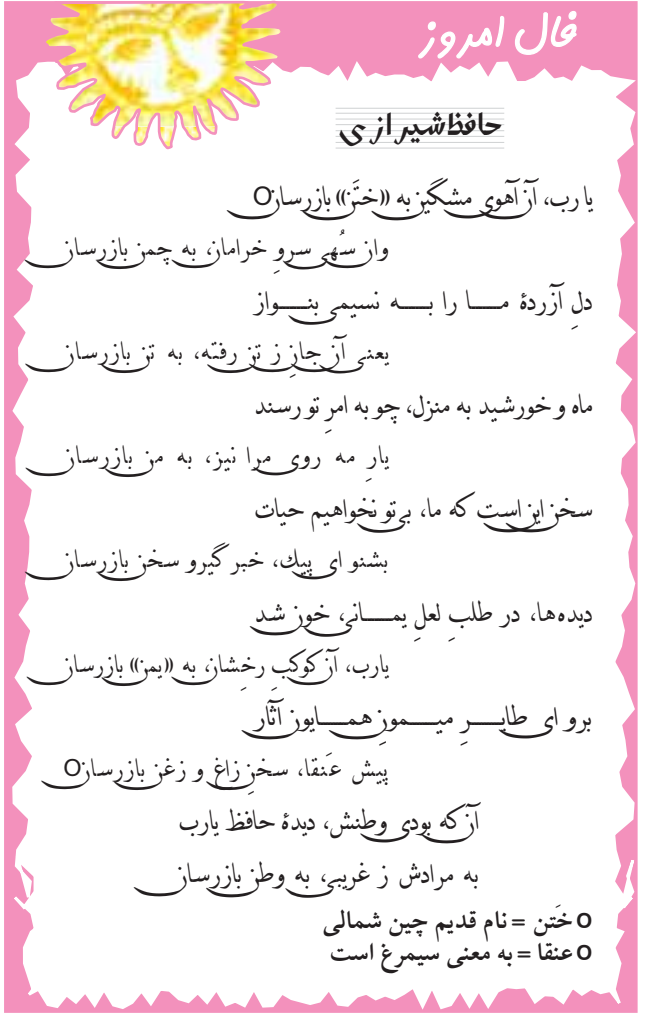 فال امروز
حافظ شیرازی
یا رب، آن آهوی مشگین به «ختَن» بازرسان O
وان سُهی سروِ خرامان، به چمن بازرسان
دلِ آزردهٔ ما را به نسیمی بنواز
یعنی آن جانِ ز تن رفته، به تن بازرسان
ماه و خورشید به منزل، چو به امرِ تو رسند
یارِ مه روی مرا نیز، به من بازرسان
سخن این است که ما، بی‌تو نخواهیم حیات
بشنو ای پیك، خبر گیرو سخن بازرسان
دیده‌ها، در طلبِ لعلِ یمانی، خون شد
یارب، آن کوکبِ رخشان، به «یمن» بازرسان
برو ای طایرِ میمونِ همایون آثار
پیش عَنقا، سخنِ زاغ و زغن بازرسان O
آن که بودی وطنش، دیدهٔ حافظ یارب
به مرادش ز غریبی، به وطن بازرسان
O خَتن = نام قدیم چین شمالی
O عنقا = به معنی سیمرغ است